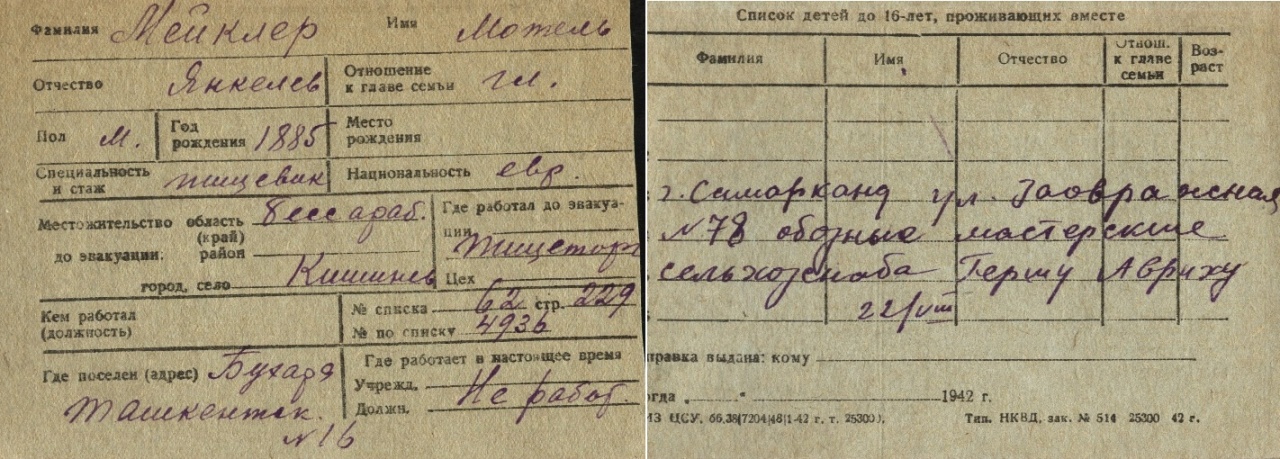 Фамилия Мейклер Имя Мотель
Отчество Янкелев Отношение к главе семьи гл.
Пол м. Год рождения 1885 Место рождения
Специальность и стаж пищевик Национальность евр.
Местожительство область Бессараб.
(край)
до эвакуации: район
город, село Кишинев
Где работал до эвакуа-
ции Пищеторг
Цех
Кем работал
(должность)
№ списка 62 стр. 229
№ по списку 4936
Где поселен (адрес) Бухара
Ташкентск.
№ 16
Где работает в настоящее время
Учрежд. Не работ.
Должн.
Список детей до 16-лет, проживающих вместе
Фамилия Имя Отчество Отнош. к главе семьи Воз-раст
г. Самарканд ул. Заовражная
№78 обозные мастерские
сельхозснаба Гершу Авриху
22/VIII
правка выдана: кому
огда „ “ 1942 г.
ИЗ ЦСУ. 66.38(7204)48)1-42 г. т. 25300). Тип. НКВД, зак. № 514 25300 42 г.